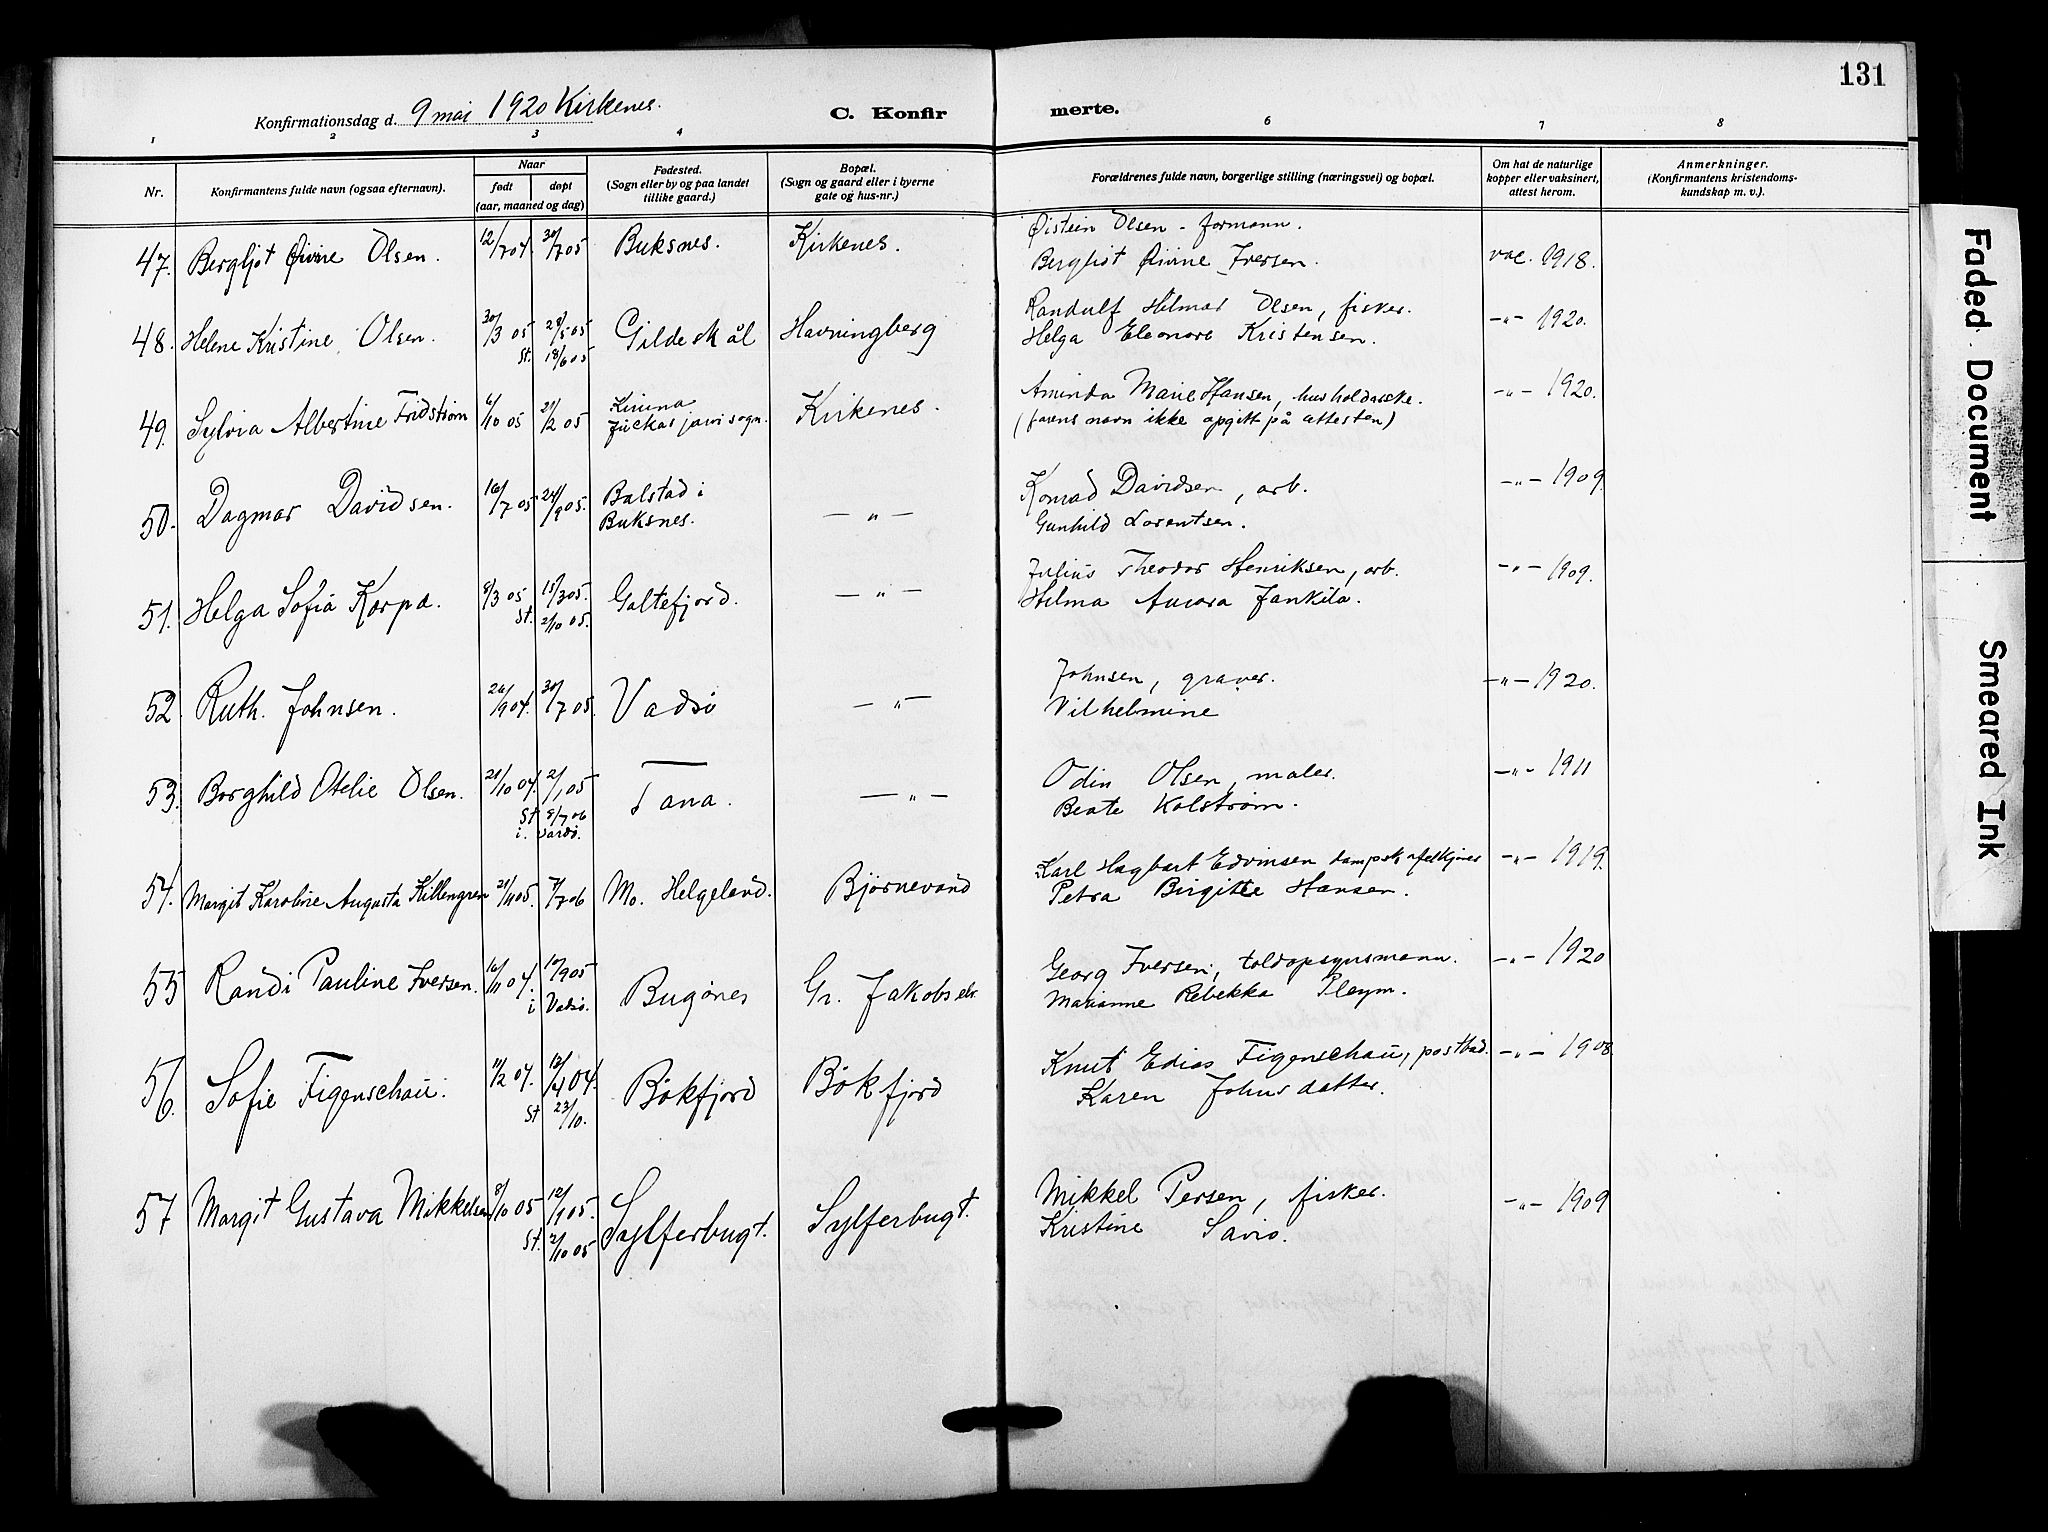 131
Konfirmationsdag d. 9 mai 1920 Kirkenes.
C. Konfirmerte.
1 2 3 4 6 7 8
Nr. Konfirmantens fulde navn (ogsaa efternavn). Naar født døpt (aar, maaned og dag) Fødested. (Sogn eller by og paa landet tillike gaard.) Bopæl. (Sogn og gaard eller i byerne gate og hus-nr.) Forældrenes fulde navn, borgerlige stilling (næringsvei) og bopæl. Om hat de naturlige kopper eller vaksinert, attest herom. Anmerkninger. (Konfirmantens kristendomskundskap m. v.).
47. Bergljot Øivine Olsen. 12/7 04. 30/7 05 Buksnes. Kirkenes. Øistein Olsen - formann. vac. 1918.
Bergliot Øivine Iversen.
48. Helene Kristine Olsen. 30/3 05 28/5 05 Gildeskål Havningberg Randulf Helmar Olsen, fisker. -"- 1920.
St. 18/6 05 Helga Eleonore Kristensen.
49. Sylvia Albertine Fridstrøm 6/10 05 21/2 05 Kiruna Kirkenes. Aminda Marie Hansen, husholderske. -"- 1920.
Juckasjärvi sogn. (farens navn ikke opgitt på attesten)
50. Dagmar Davidsen. 16/7 05 24/9 05. Balstad i -"- Konrad Davidsen, arb. -"- 1909.
Buksnes. Gunhild Lorentsen.
51. Helga Sofia Korpa. 8/3 05 15/3 05. Galtefjord. -"- Julius Theodor Henriksen, arb. -"- 1909.
St. 2/10 05. Hilma Aurora Jankila.
52 Ruth. Johnsen. 26/9 04. 30/7 05. Vadsö -"- Johnsen, graver. -"- 1920.
Vilhelmine
53. Borghild Otelie Olsen. 21/10 04. 2/1 05 Tana. -"- Odin Olsen, maler. -"- 1911
St 8/7 06 Beate Kolstrøm.
i. Vardö.
54. Margit Karoline Augusta Killengren 21/11 05. 7/7 06 Mo. Helgeland. Bjørnevand Karl Hagbart Edvinsen -"- 1919.
Petra Birgitte Hansen.
55 Randi Pauline Iversen. 16/11 04. 10/9 05 Bugønes Gr. Jakobselv Georg Iversen, toldopsynsmann. -"- 1920
i Vadsø. Marianne Rebekka Pleym.
56. Sofie Figenschau. 11/2 04. 12/4 04. Bökfjord Bökfjord Knut Edias Figenschau, postbud. -"- 1908.
St 23/10. Karen Johnsdatter.
57 Margit Gustava Mikkelsen 8/10 05 12/1 05. Sylferbugt. Sylferbugt. Mikkel Persen, fisker. -"- 1909
St. 2/10 05 Kristine Savio.
Faded Document
Smeared Ink